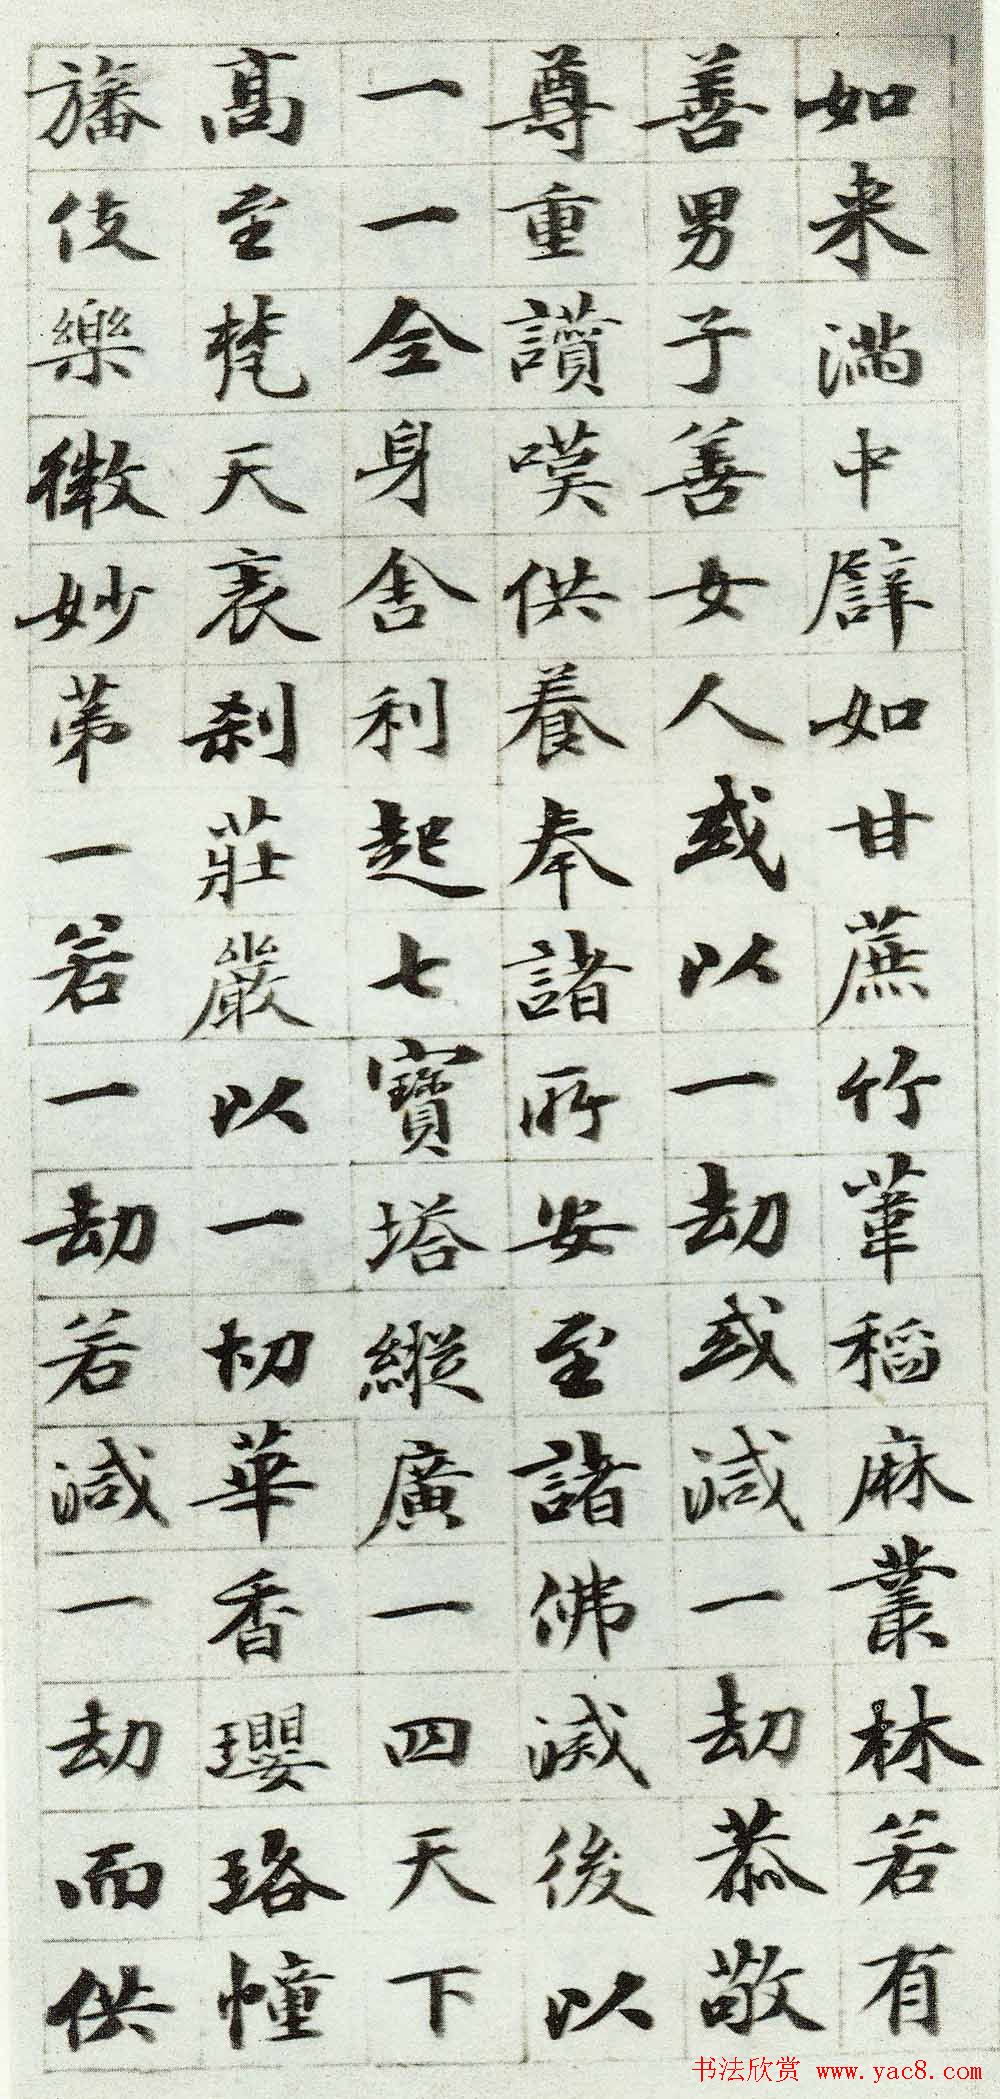 如来滿中譬如甘蔗竹葦稻麻叢林若有
善男子善女人或以一劫或減一劫恭敬
尊重讚嘆供養奉諸所安至諸佛滅後以
一一全身舍利起七寶塔縱廣一四天下
高至梵天表刹莊嚴以一切華香瓔珞幢
旛伎樂微妙第一若一劫若減一劫而供
书法欣赏 www.yac8.com